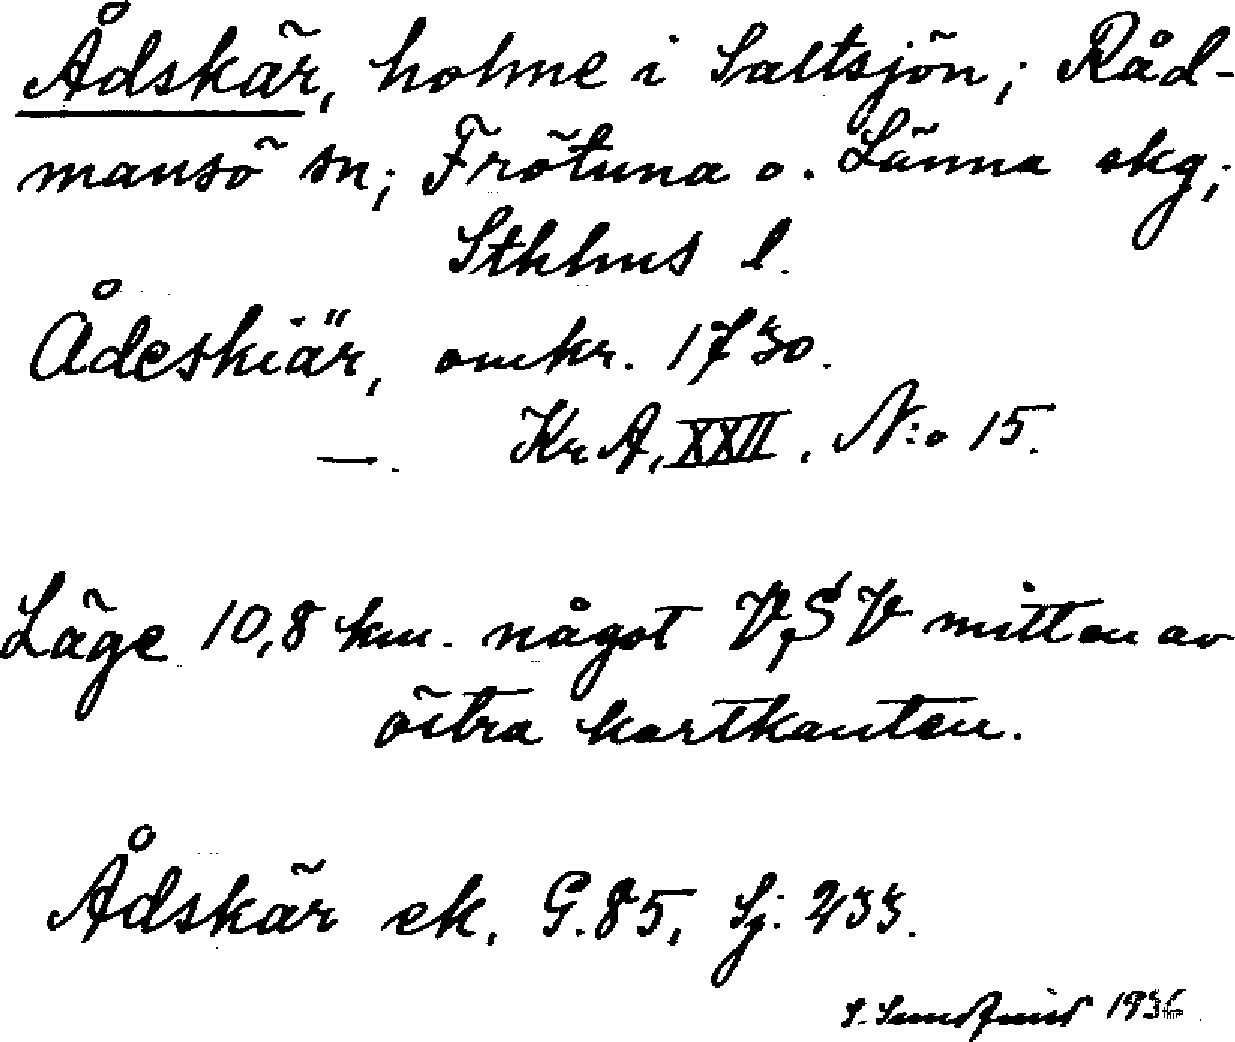 Ådskär, holme i Saltsjön; Råd-
mansö sn; Frötuna o. Länna skg;
Sthlms l.
Ådeskiär, omkr. 1730.
—. Kr.A, XXII, N:o 15.
Läge 10,8 km. något V,SV mitten av
östra kartkanten.
Ådskär ek. G.85, Sj: 233.
S. Sundqvist 1936